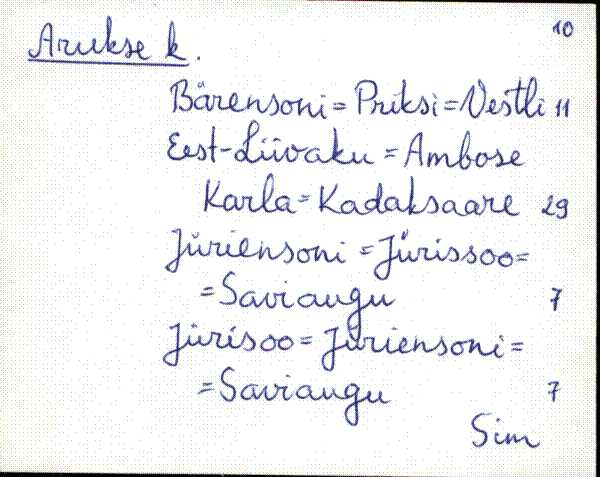 10
Arukse k.
Bärensoni = Priksi = Vestli 11
Eest-Liivaku = Ambose
Karla = Kadaksaare 29
Jüriensoni = Jürissoo =
= Saviaugu 7
Jürisoo = Jüriensoni =
= Saviaugu 7
Sim